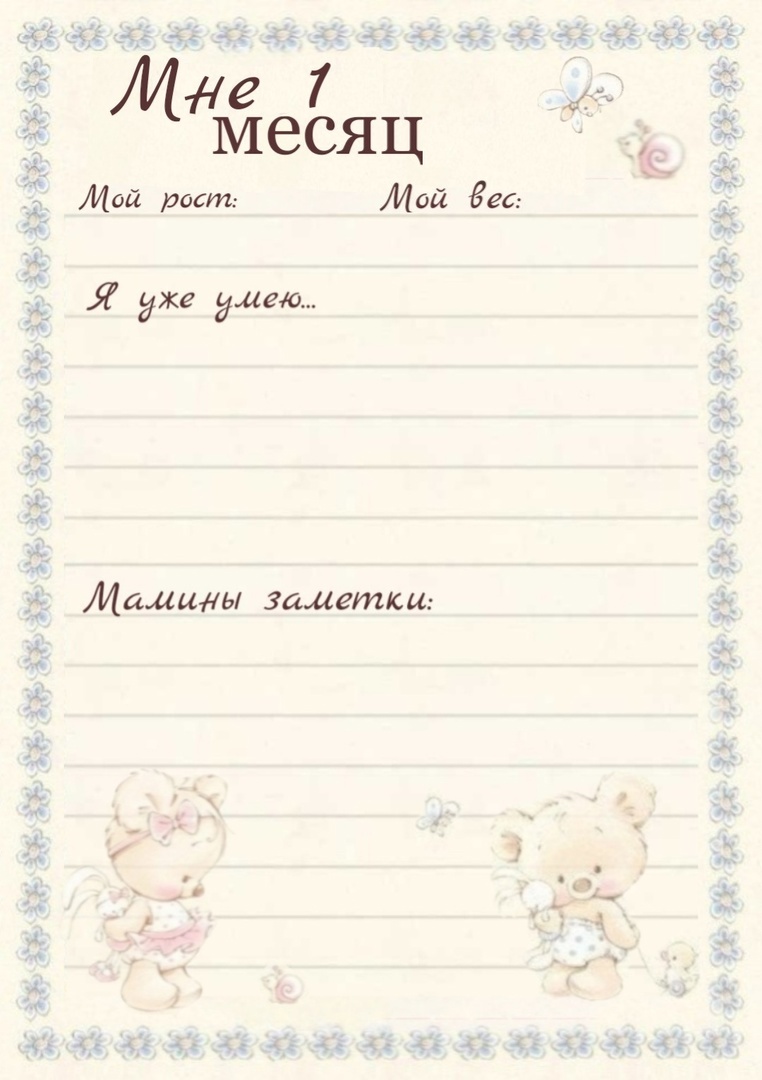 Мне 1
месяц
Мой рост: Мой вес:
Я уже умею...
Мамины заметки: